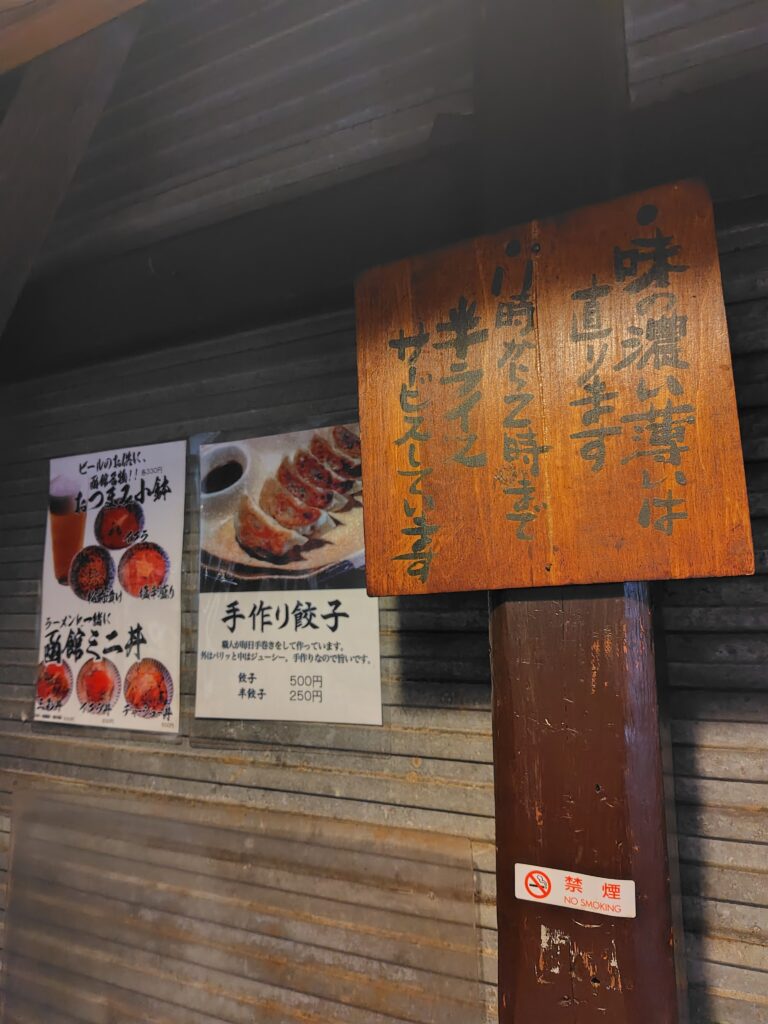 ・味の濃い薄いは
直ります
・11時から2時まで
半ライス
サービスしています
ビールのお供に、
函館名物!! 各330円
おつまみ小鉢
イクラ
松前漬け
塩辛盛り
ラーメンと一緒に
函館ミニ丼
イクラ丼
チャーシュー丼
手作り餃子
職人が毎日手巻きをして作っています。
外はパリッと中はジューシー。手作りなので旨いです。
餃子 500円
半餃子 250円
禁煙
NO SMOKING